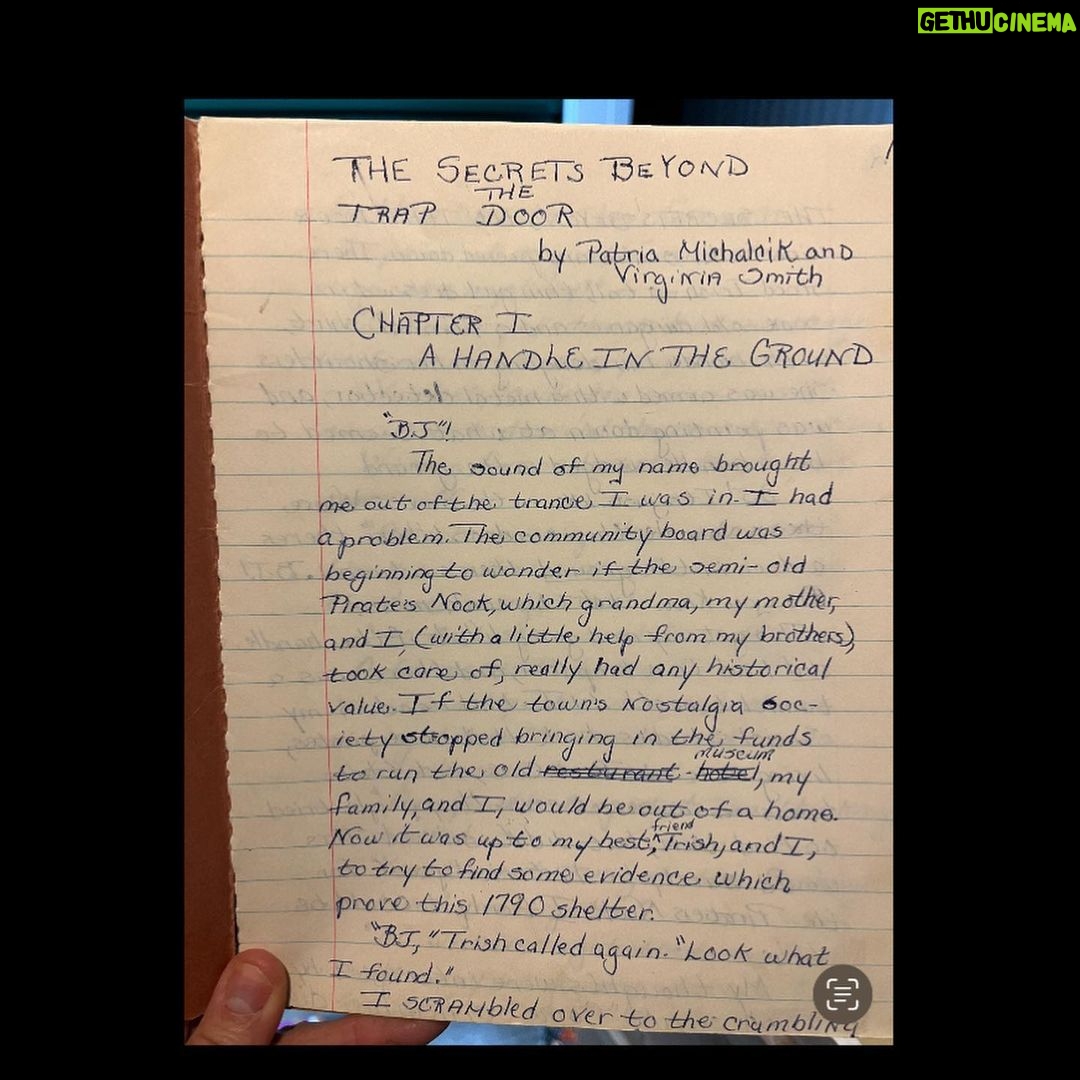 GETHUCINEMA
THE SECRETS BEYOND
THE
TRAP DOOR
by Patria Michalcik and
Virginia Smith
CHAPTER I
A HANDLE IN THE GROUND
"BJ"!
The sound of my name brought
me out of the trance I was in. I had
a problem. The community board was
beginning to wonder if the semi-old
Pirate's Nook, which grandma, my mother,
and I, (with a little help from my brothers),
took care of, really had any historical
value. If the town's Nostalgia Soc-
iety stopped bringing in the funds
museum
to run the old resturant - hotel, my
family, and I, would be out of a home.
friend
Now it was up to my best, ^ Trish, and I,
to try to find some evidence which
prove this 1790 shelter.
"BJ," Trish called again. "Look what
I found."
I scrambled over to the crumbling